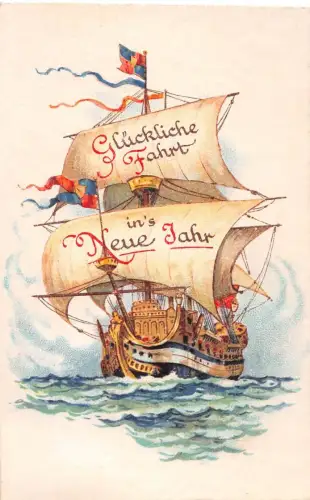 Glückliche
Fahrt
in's
Neue Jahr